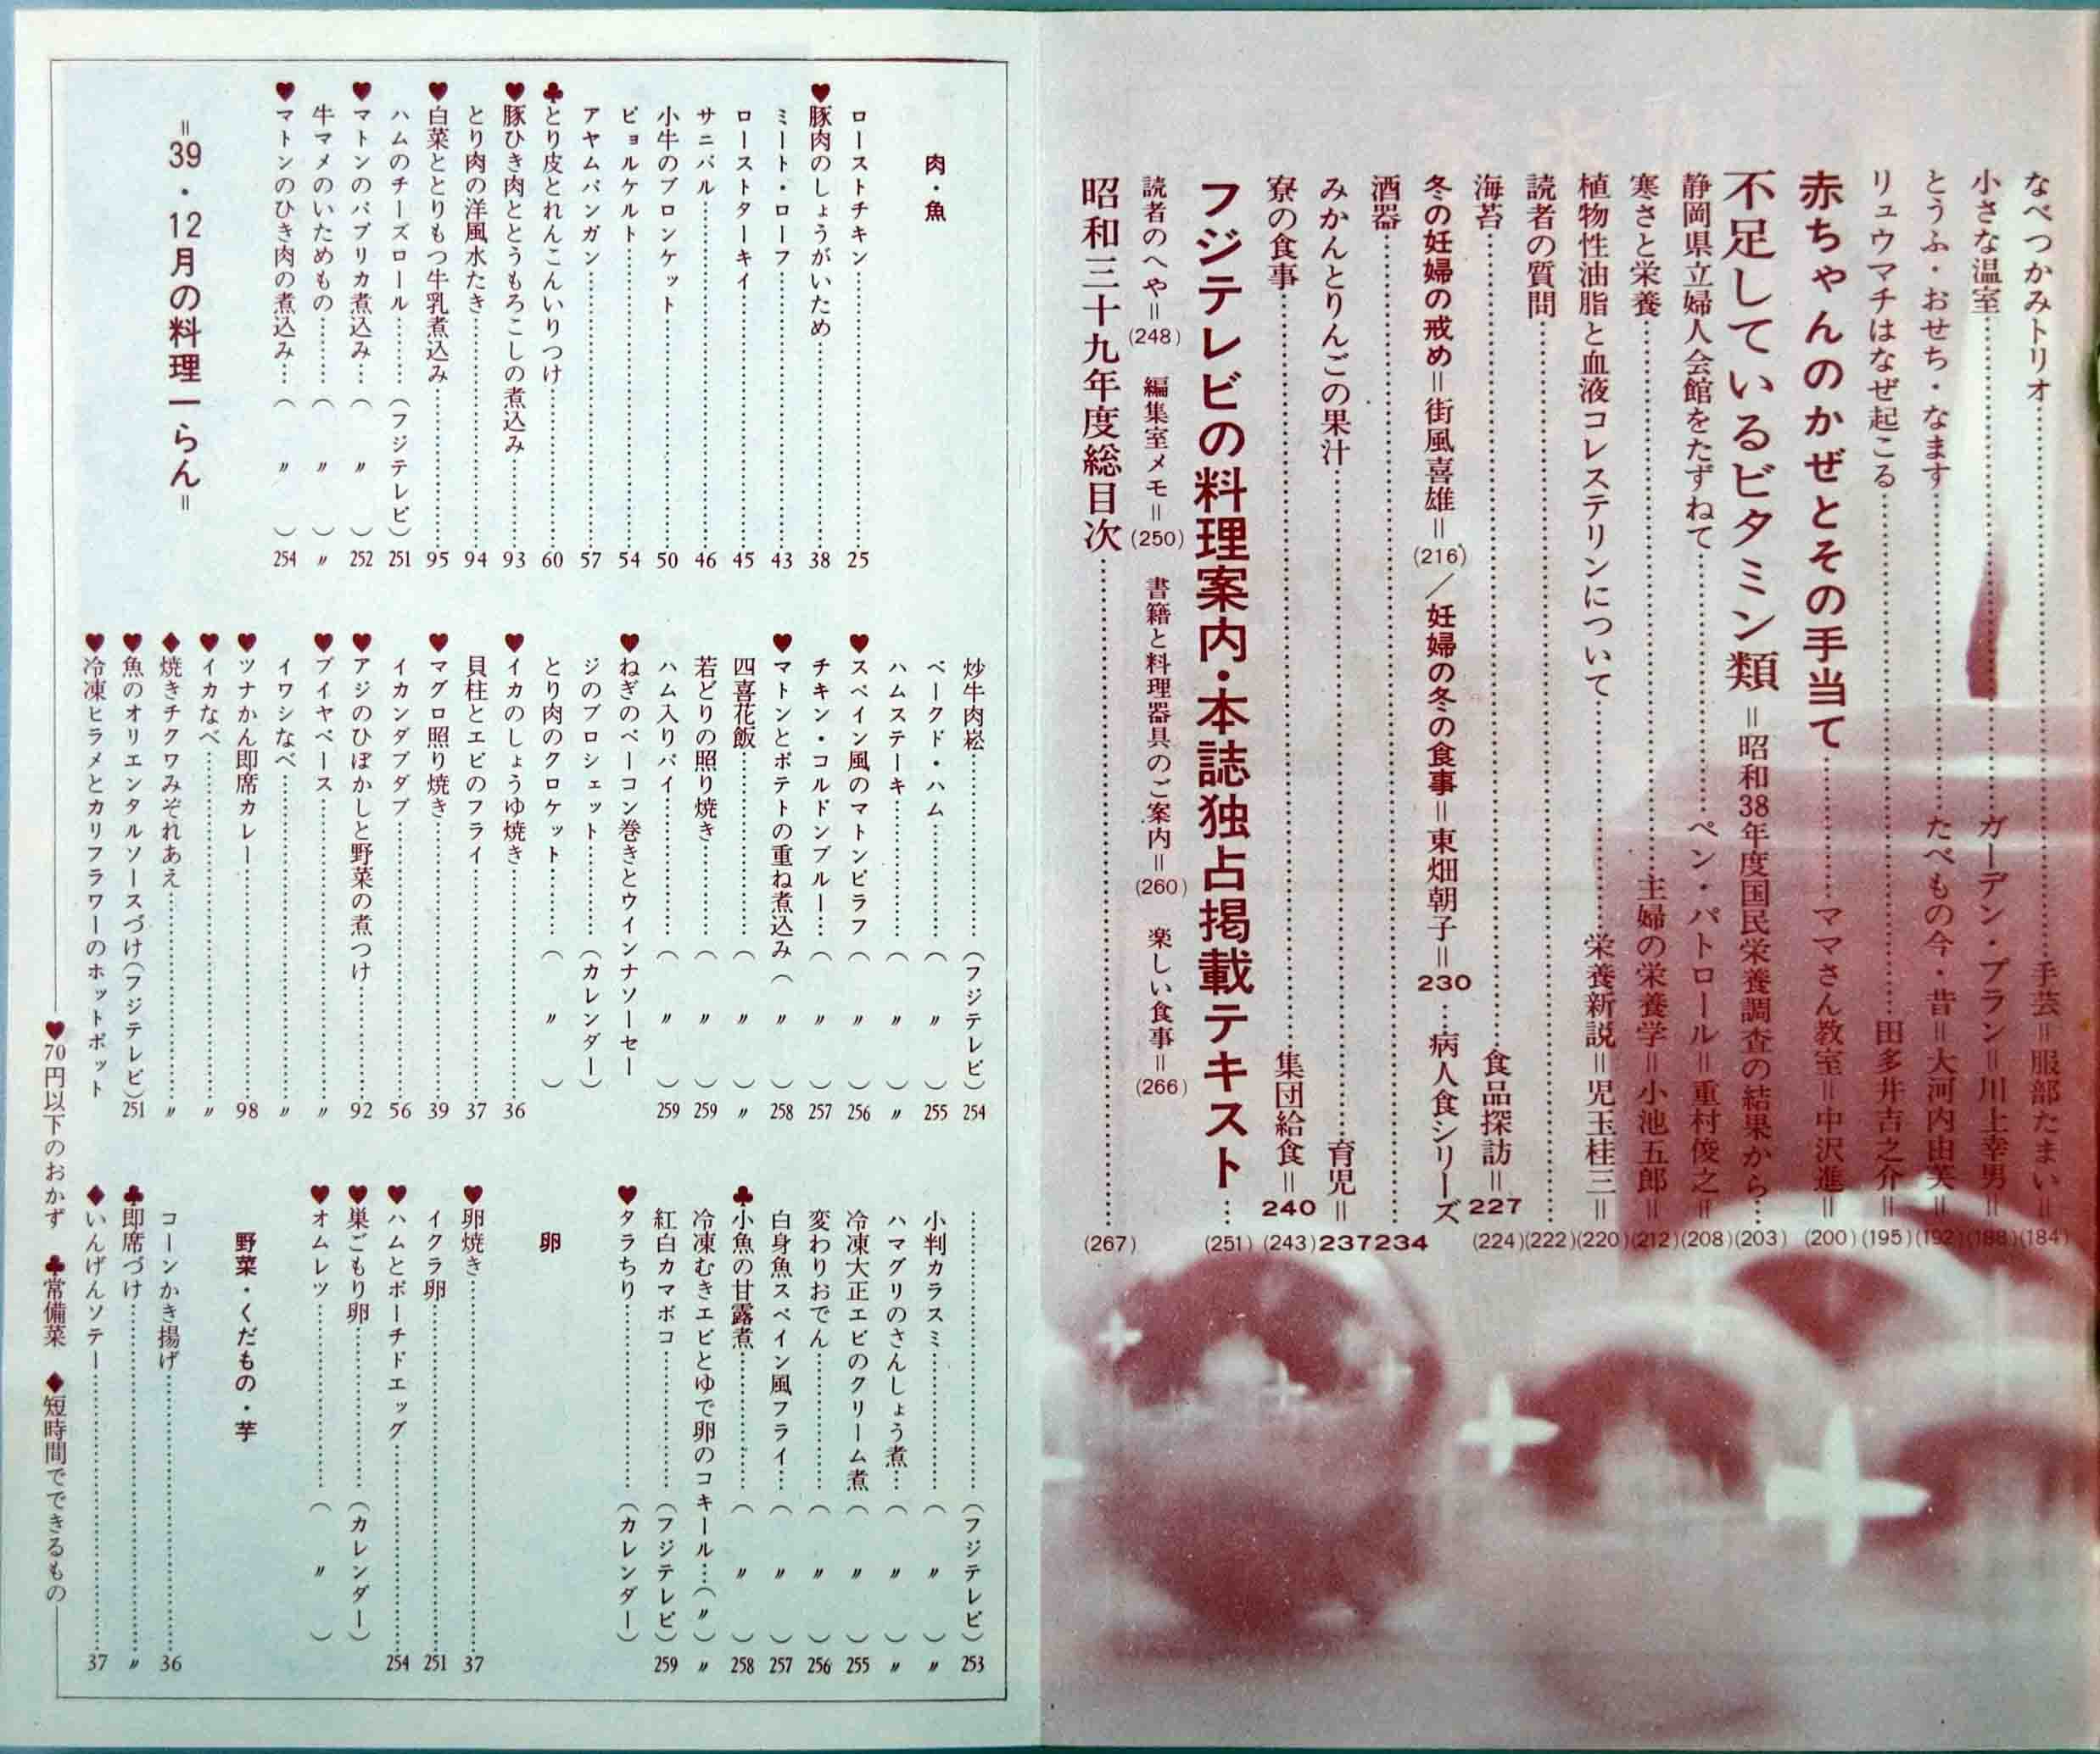 なべつかみトリオ……手芸＝服部たまい＝(184)
小さな温室……ガーデン・プラン＝川上幸男＝(188)
とうふ・おせち・なます……たべもの今・昔＝大河内由芙＝(192)
リュウマチはなぜ起こる……田多井吉之介＝(195)
赤ちゃんのかぜとその手当て……ママさん教室＝中沢進＝(200)
不足しているビタミン類＝昭和38年度国民栄養調査の結果から…(203)
静岡県立婦人会館をたずねて……ペン・パトロール＝重村俊之＝(208)
寒さと栄養……主婦の栄養学＝小池五郎＝(212)
植物性油脂と血液コレステリンについて……栄養新説＝児玉桂三＝(220)
読者の質問……(222)
海苔……食品探訪＝(224)
冬の妊婦の戒め＝街風喜雄＝(216)／妊婦の冬の食事＝東畑朝子＝230…病人食シリーズ227
酒器……234
みかんとりんごの果汁……育児＝237
寮の食事……集団給食＝240(243)
フジテレビの料理案内・本誌独占掲載テキスト…(251)
読者のへや＝(248) 編集室メモ＝(250) 書籍と料理器具のご案内＝(260) 楽しい食事＝(266)
昭和三十九年度総目次……(267)
肉・魚
ローストチキン……25
♥豚肉のしょうがいため……38
ミート・ローフ……43
ローストターキイ……45
サニバル……46
小牛のブロンケット……50
ピョルケルト……54
アヤムパンガン……57
♣とり皮とれんこんいりつけ……60
♥豚ひき肉ととうもろこしの煮込み……93
とり肉の洋風水たき……94
♥白菜ととりもつ牛乳煮込み……95
ハムのチーズロール……(フジテレビ)251
♥マトンのパプリカ煮込み…(〃)252
牛マメのいためもの……(〃)〃
♥マトンのひき肉の煮込み…(〃)254
＝39・12月の料理一らん＝
炒牛肉崧……(フジテレビ)254
ベークド・ハム……(〃)255
ハムステーキ……(〃)〃
♥スペイン風のマトンピラフ(〃)256
チキン・コルドンブルー…(〃)257
♥マトンとポテトの重ね煮込み(〃)258
四喜花飯……(〃)〃
若どりの照り焼き……(〃)259
ハム入りパイ……(〃)259
♥ねぎのベーコン巻きとウインナソーセー
ジのブロシェット……(カレンダー)
とり肉のクロケット……(〃)
♥イカのしょうゆ焼き……36
貝柱とエビのフライ……37
♥マグロ照り焼き……39
イカンダブダブ……56
♥アジのひぼかしと野菜の煮つけ……92
♥ブイヤベース……〃
イワシなべ……〃
♥ツナかん即席カレー……98
♥イカなべ……〃
◆焼きチクワみぞれあえ……〃
♥魚のオリエンタルソースづけ(フジテレビ)251
♥冷凍ヒラメとカリフラワーのホットポット
……(フジテレビ)253
小判カラスミ……(〃)〃
ハマグリのさんしょう煮…(〃)〃
冷凍大正エビのクリーム煮(〃)255
変わりおでん……(〃)256
白身魚スペイン風フライ…(〃)257
♣小魚の甘露煮……(〃)258
冷凍むきエビとゆで卵のコキール…(〃)〃
紅白カマボコ……(フジテレビ)259
♥タラちり……(カレンダー)
卵
♥卵焼き……37
イクラ卵……251
♥ハムとポーチドエッグ……254
♥巣ごもり卵……(カレンダー)
♥オムレツ……(〃)
野菜・くだもの・芋
コーンかき揚げ……36
♣即席づけ……〃
◆いんげんソテー……37
♥70円以下のおかず ♣常備菜 ◆短時間でできるもの